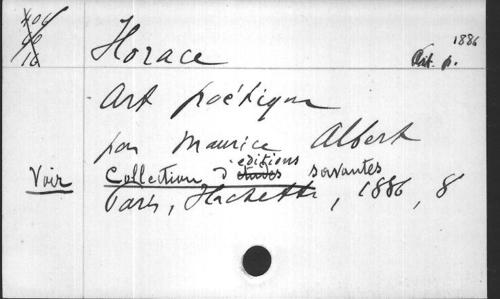 Horace
1886
Art. p.
Art poétique
par Maurice Albert
Voir Collection d'éditions savantes
Paris, Hachette, 1886, 8